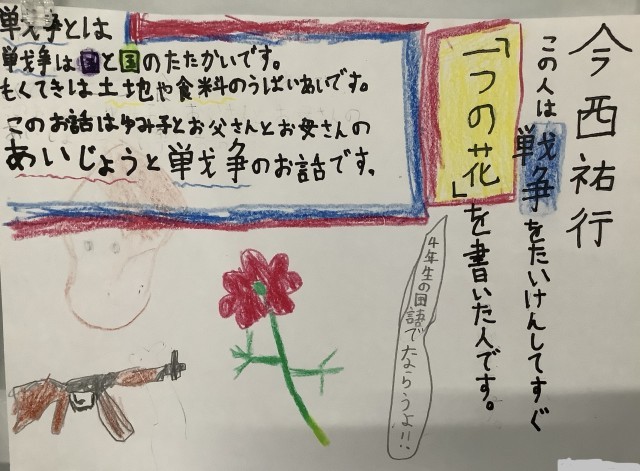 今西祐行
この人は戦争をたいけんしてすぐ
「一つの花」を書いた人です。
4年生の国語でならうよ!!
戦争とは
戦争は国と国のたたかいです。
もくてきは土地や食料のうばいあいです。
このお話はゆみ子とお父さんとお母さんの
あいじょうと戦争のお話です。